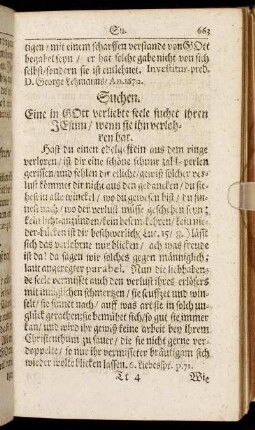 Su. 663
tigen / mit einem scharffen verstande von GOtt
begabet seyn / er hat solche gabe nicht von sich
selbst / sondern sie ist entlehnet. Investitur-pred.
D. George Lehmanns / An. 1670.
Suchen.
Eine in GOtt verliebte seele suchet ihren
JEsum / wenn sie ihn verloh-
ren hat.
Hast du einen edelgestein aus dem ringe
verloren / ist dir eine schöne schnur zahl-perlen
gerissen / und fehlen dir etliche / gewiß solcher ver-
lust kömmet dir nicht aus den gedancken / du sie-
hest in alle winckel / wo du gewesen bist / du
nach / wo der verlust müsse geschehen seyn /
kein licht anzünden / kein besem-kehren / kein nie-
der-bücken ist dir beschwerlich / Luc. 15 / 8. Lässt
sich das verlohrne nur blicken / ach was freude
ist da! da sagen wir solches gegen männiglich /
laut angeregter parabel. Nun die liebhaben-
de seele vermisset auch den verlust ihres erlösers
mit innglichen schmertzen / sie seuffzet und win-
selt / sie sinnet nach / auff was art sie in solch un-
glück gerathen / sie bemühet sich / so gut sie immer
kan / und wird ihr gewiß keine arbeit bey ihrem
Christenthum zu sauer / die sie nicht gerne ver-
doppelte / so nur ihr vermisseter bräutigam sich
wieder wolte blicken lassen. s. Liebesspr. p. 71.
Tt 4 Wie